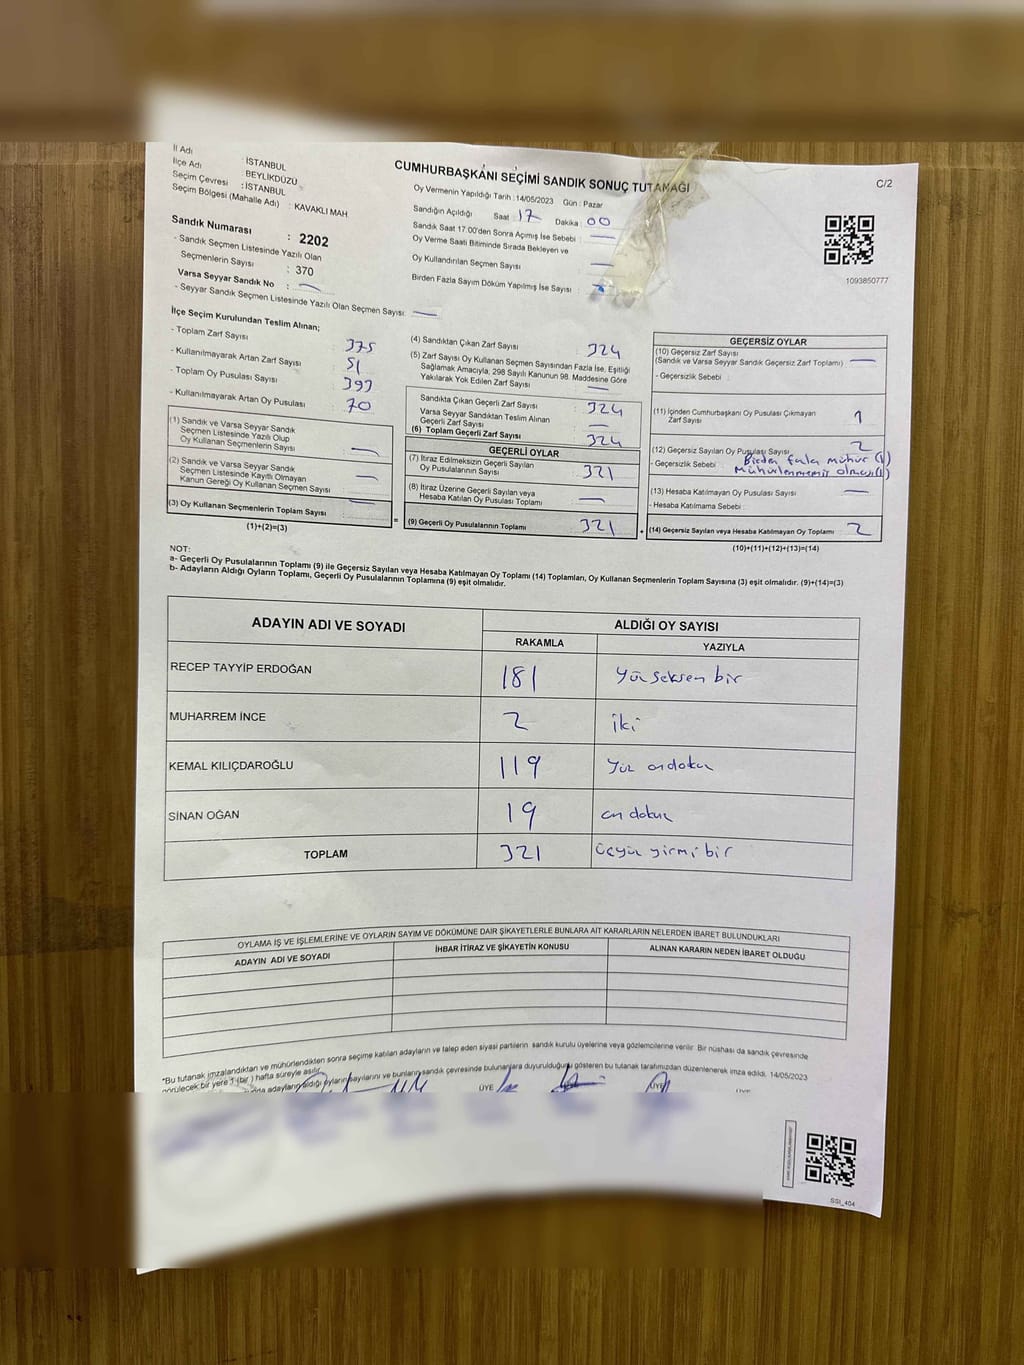 İl Adı : İSTANBUL
İlçe Adı : BEYLİKDÜZÜ
Seçim Çevresi : İSTANBUL
Seçim Bölgesi (Mahalle Adı) : KAVAKLI MAH
CUMHURBAŞKANI SEÇİMİ SANDIK SONUÇ TUTANAĞI
C/2
Oy Vermenin Yapıldığı Tarih : 14/05/2023 Gün : Pazar
Sandığın Açıldığı Saat 17 Dakika 00
Sandık Saat 17.00'den Sonra Açımış İse Sebebi : —
Oy Verme Saati Bitiminde Sırada Bekleyen ve
Oy Kullandırılan Seçmen Sayısı : —
Birden Fazla Sayım Döküm Yapılmış İse Sayısı :
1093850777
Sandık Numarası : 2202
- Sandık Seçmen Listesinde Yazılı Olan
Seçmenlerin Sayısı : 370
Varsa Seyyar Sandık No : —
- Seyyar Sandık Seçmen Listesinde Yazılı Olan Seçmen Sayısı: —
İlçe Seçim Kurulundan Teslim Alınan;
- Toplam Zarf Sayısı : 375
- Kullanılmayarak Artan Zarf Sayısı : 51
- Toplam Oy Pusulası Sayısı : 393
- Kullanılmayarak Artan Oy Pusulası : 70
(1) Sandık ve Varsa Seyyar Sandık
Seçmen Listesinde Yazılı Olup
Oy Kullanan Seçmenlerin Sayısı : —
(2) Sandık ve Varsa Seyyar Sandık
Seçmen Listesinde Kayıtlı Olmayan
Kanun Gereği Oy Kullanan Seçmen Sayısı : —
(3) Oy Kullanan Seçmenlerin Toplam Sayısı : —
(1)+(2)=(3)
(4) Sandıktan Çıkan Zarf Sayısı : 324
(5) Zarf Sayısı Oy Kullanan Seçmen Sayısından Fazla İse, Eşitliği
Sağlamak Amacıyla, 298 Sayılı Kanunun 98. Maddesine Göre
Yakılarak Yok Edilen Zarf Sayısı : —
Sandıkta Çıkan Geçerli Zarf Sayısı : 324
Varsa Seyyar Sandıktan Teslim Alınan
Geçerli Zarf Sayısı : —
(6) Toplam Geçerli Zarf Sayısı : 324
GEÇERLİ OYLAR
(7) İtiraz Edilmeksizin Geçerli Sayılan
Oy Pusulalarının Sayısı : 321
(8) İtiraz Üzerine Geçerli Sayılan veya
Hesaba Katılan Oy Pusulası Toplamı : —
= (9) Geçerli Oy Pusulalarının Toplamı : 321 +
GEÇERSİZ OYLAR
(10) Geçersiz Zarf Sayısı
(Sandık ve Varsa Seyyar Sandık Geçersiz Zarf Toplamı) : —
- Geçersizlik Sebebi :
(11) İçinden Cumhurbaşkanı Oy Pusulası Çıkmayan
Zarf Sayısı : 1
(12) Geçersiz Sayılan Oy Pusulası Sayısı : 2
- Geçersizlik Sebebi : Birden fazla mühür (1)
Mühürlenmemiş olması(1)
(13) Hesaba Katılmayan Oy Pusulası Sayısı : —
- Hesaba Katılmama Sebebi :
(14) Geçersiz Sayılan veya Hesaba Katılmayan Oy Toplamı : 2
(10)+(11)+(12)+(13)=(14)
NOT:
a- Geçerli Oy Pusulalarının Toplamı (9) ile Geçersiz Sayılan veya Hesaba Katılmayan Oy Toplamı (14) Toplamları, Oy Kullanan Seçmenlerin Toplam Sayısına (3) eşit olmalıdır. (9)+(14)=(3)
b- Adayların Aldığı Oyların Toplamı, Geçerli Oy Pusulalarının Toplamına (9) eşit olmalıdır.
ADAYIN ADI VE SOYADI
ALDIĞI OY SAYISI
RAKAMLA YAZIYLA
RECEP TAYYİP ERDOĞAN 181 Yüz seksen bir
MUHARREM İNCE 2 iki
KEMAL KILIÇDAROĞLU 119 Yüz ondokuz
SİNAN OĞAN 19 on dokuz
TOPLAM 321 üçyüz yirmi bir
OYLAMA İŞ VE İŞLEMLERİNE VE OYLARIN SAYIM VE DÖKÜMÜNE DAİR ŞİKAYETLERLE BUNLARA AİT KARARLARIN NELERDEN İBARET BULUNDUKLARI
ADAYIN ADI VE SOYADI İHBAR İTİRAZ VE ŞİKAYETİN KONUSU ALINAN KARARIN NEDEN İBARET OLDUĞU
*Bu tutanak imzalandıktan ve mühürlendikten sonra seçime katılan adayların ve talep eden siyasi partilerin sandık kurulu üyelerine veya gözlemcilerine verilir. Bir nüshası da sandık çevresinde
görülecek bir yere 1 (bir) hafta süreyle asılır.
adayların aldığı oyların sayılarını ve bunların sandık çevresinde bulunanlara duyurulduğunu gösteren bu tutanak tarafımızdan düzenlenerek imza edildi. 14/05/2023
ÜYE ÜYE ÜYE
SSI_404